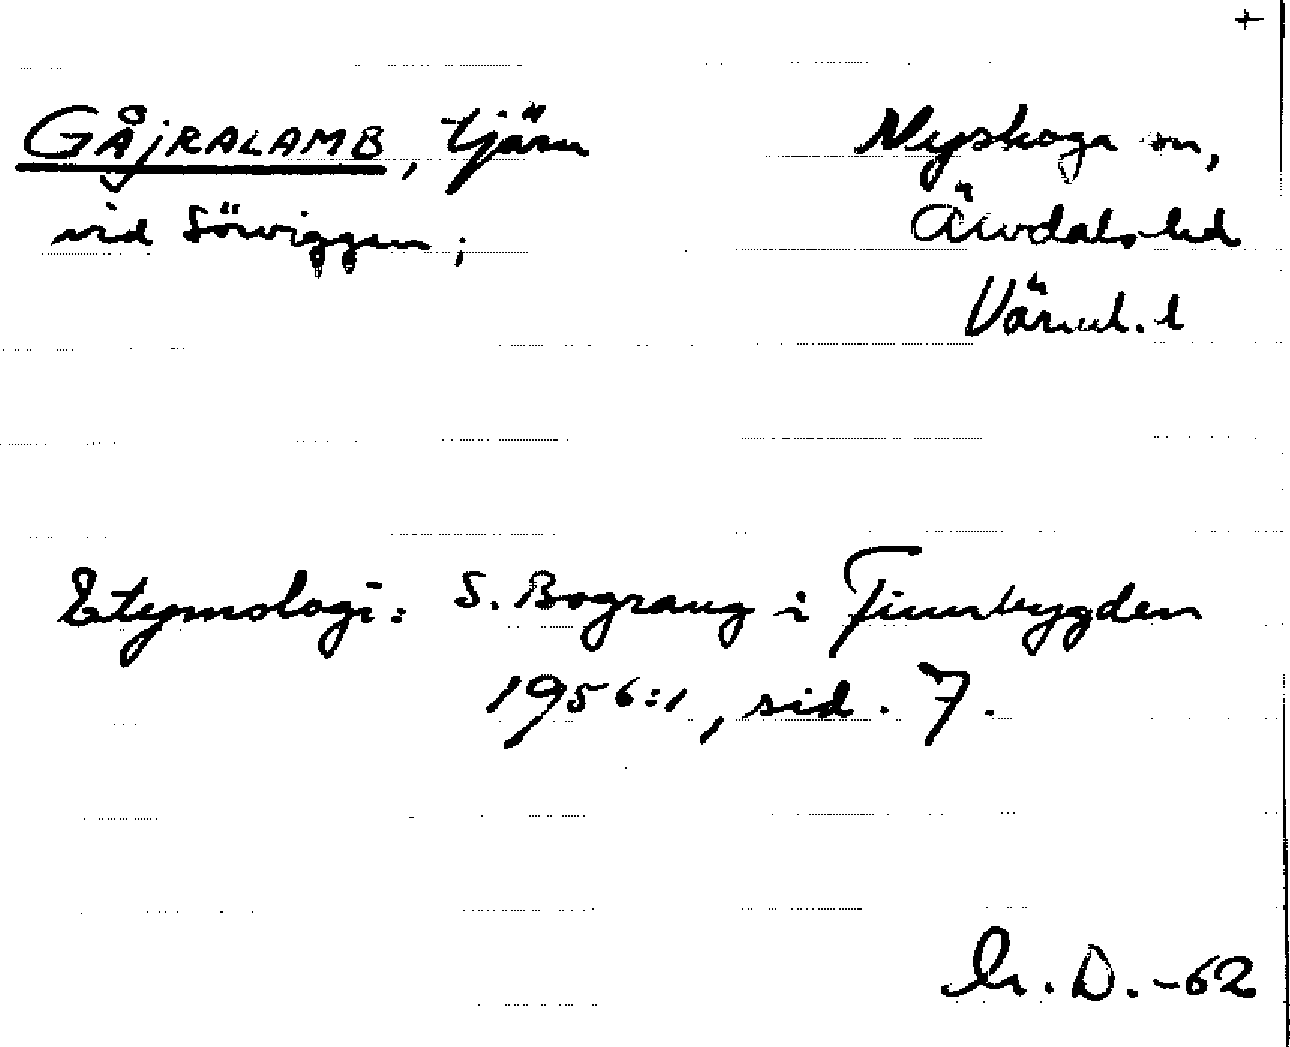 +
GÅjRALAMB, tjärn
Nyskoga sn,
vid Sörviggen;
Älvdals hd
Värml. l
Etymologi: S. Bograng i Finnbygden
1956:1, sid. 7.
D. -62